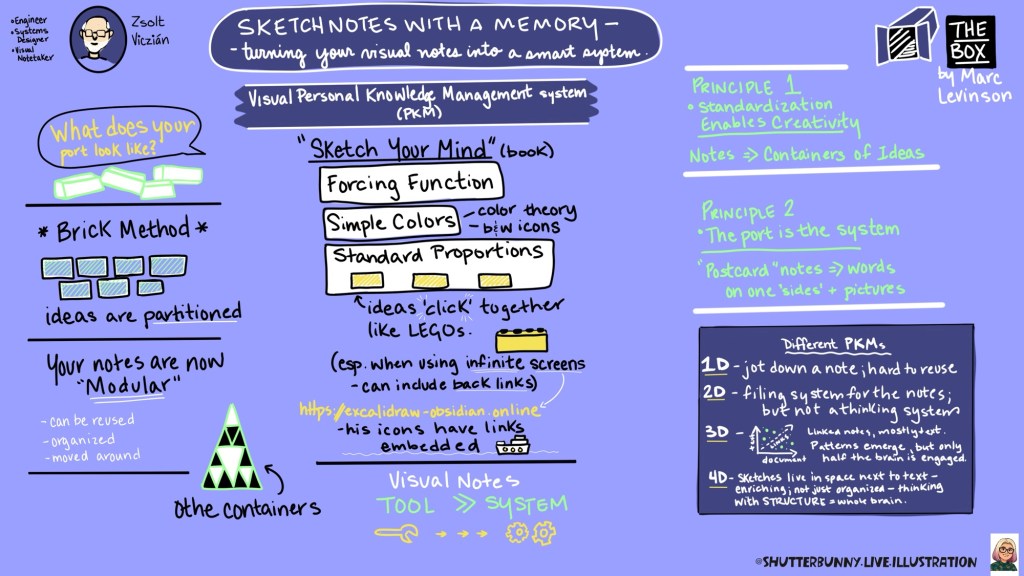 •Engineer
•Systems
Designer
•Visual
Notetaker
Zsolt
Viczián
SKETCHNOTES WITH A MEMORY –
- turning your visual notes into a smart system.
THE
BOX
by Marc
Levinson
Visual Personal Knowledge Management system
(PKM)
What does your
port look like?
* Brick Method *
ideas are partitioned
Your notes are now
"Modular"
- can be reused
- organized
- moved around
Othe containers
"Sketch Your Mind" (book)
Forcing Function
Simple Colors
- color theory
- b&w icons
Standard Proportions
ideas 'click' together
like LEGOs.
(esp. when using infinite screens
- can include back links)
https://excalidraw-obsidian.online
- his icons have links
embedded
Visual Notes
TOOL >> SYSTEM
PRINCIPLE 1
• Standardization
Enables Creativity
Notes => Containers of Ideas
PRINCIPLE 2
• The port is the system
"Postcard" notes => words
on one 'sides' + pictures
Different PKMs
1D - jot down a note; hard to reuse
2D - filing system for the notes;
but not a thinking system
3D -
document
Linked notes, mostly text.
Patterns emerge, but only
half the brain is engaged.
4D - Sketches live in space next to text -
enriching; not just organized - thinking
with STRUCTURE = whole brain.
@SHUTTERBUNNY.LIVE.ILLUSTRATION